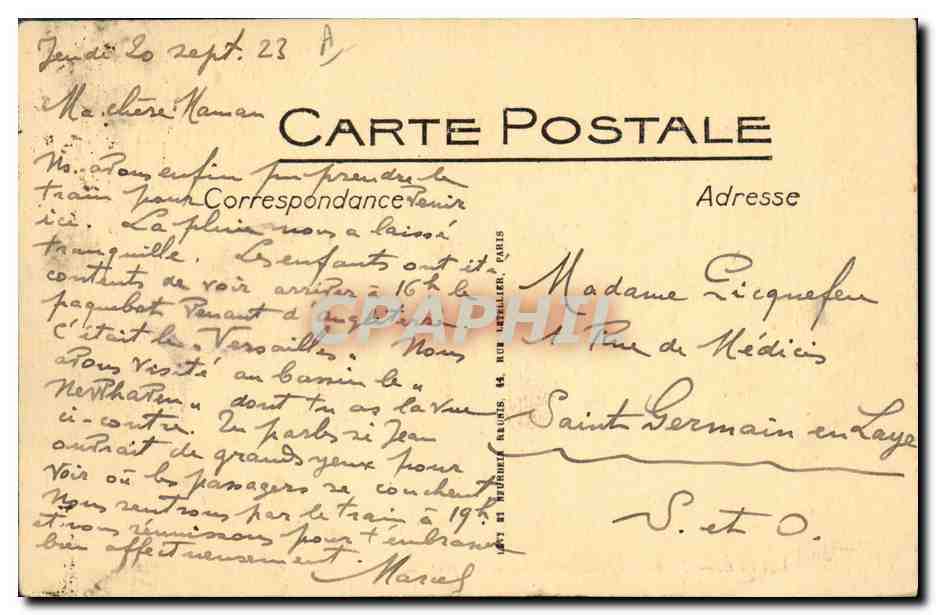 Jeudi 20 sept. 23
A
Ma chère Maman
CARTE POSTALE
Correspondance
Adresse
Ns. avons enfin pu prendre le
train pour venir
ici. La pluie nous a laissé
tranquille. Les enfants ont été
contents de voir arriver à 16h le
paquebot venant d'Angleterre
c'était le "Versailles". Nous
avons visité au bassin le "
Newhaven" dont tu as la vue
ci-contre. Tu parles si Jean
ouvrait de grands yeux pour
voir où les passagers se couchent
Nous rentrons par le train à 19h
et nous réunissons pour t'embrasser
bien affectueusement.
Marcel
LEVY ET NEURDEIN REUNIS, 44, RUE LETELLIER, PARIS
Madame Gicquefeu
1 Rue de Médicis
Saint Germain en Laye
S. et O.
CPAPHIL